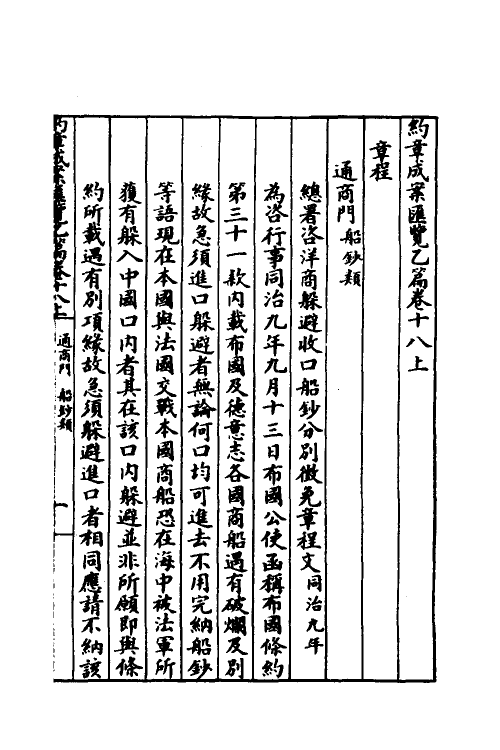 約章成案匯覽乙篇卷十八上
章程
通商門 船鈔類
總署咨洋商躲避收口船鈔分別徵免章程文 同治九年
為咨行事同治九年九月十三日布國公使函稱布國條約
第三十一款內載布國及德意志各國商船遇有破爛及別
緣故急須進口躲避者無論何口均可進去不用完納船鈔
等語現在本國與法國交戰本國商船恐在海中被法軍所
獲有躲入中國口內者其在該口內躲避並非所願即與條
約所載遇有別項緣故急須躲避進口者相同應請不納該
約章成案匯覽乙篇卷十八上 通商門 船鈔類 一